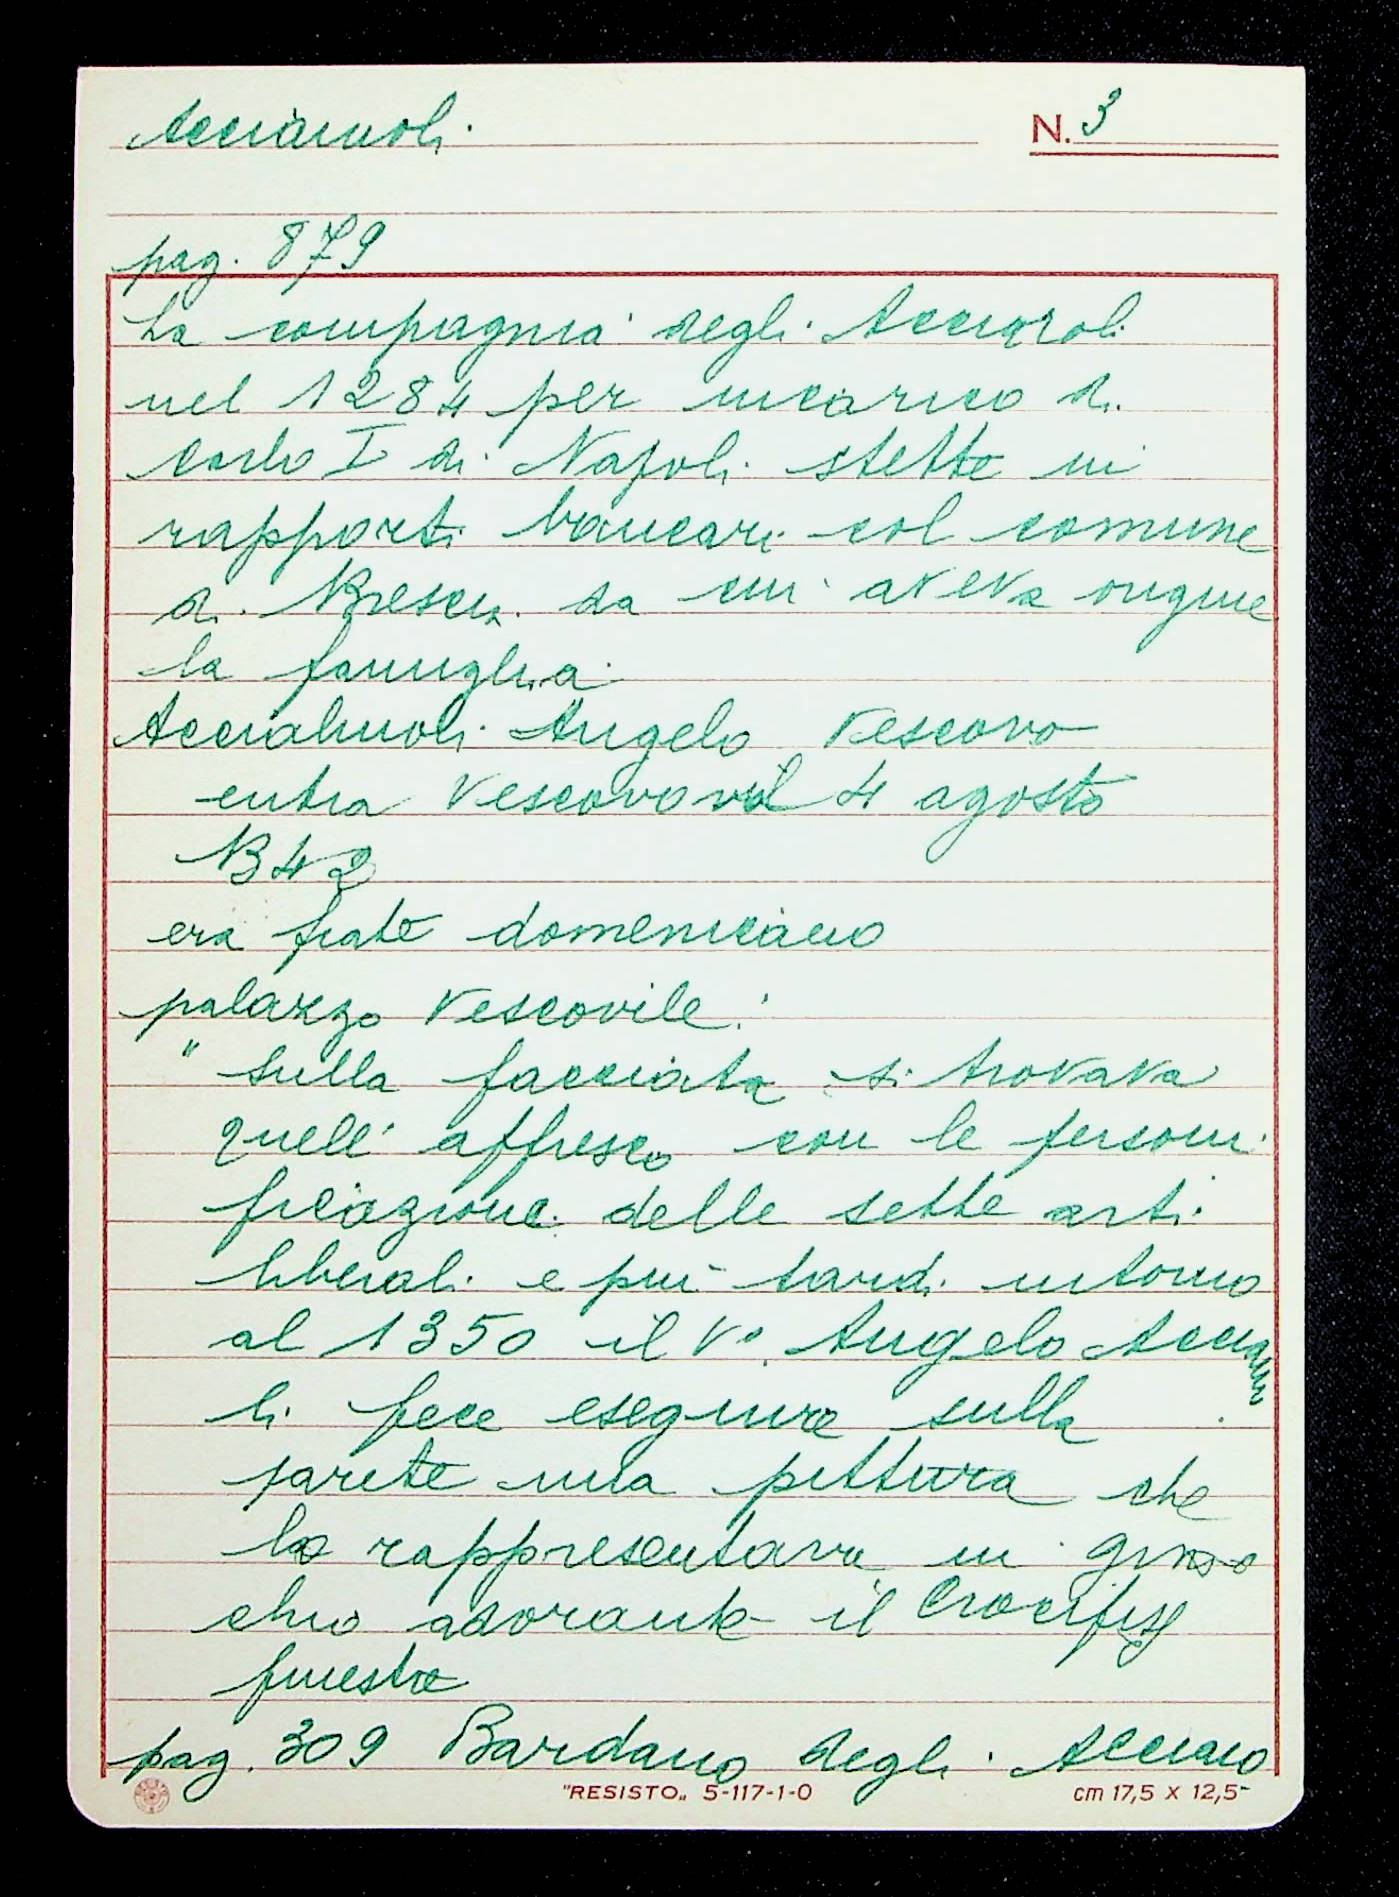 Acciaiuoli
N. 3
pag. 879
La compagnia degli Acciaioli
nel 1284 per incarico di
Carlo I di Napoli stette in
rapporti bancari col comune
di Brescia da cui aveva origine
la famiglia
Acciaiuoli Angelo Vescovo
entra Vescovo il 4 agosto
1342
era frate domenicano
palazzo Vescovile:
" Sulla facciata si trovava
quell' affresco con le personi
ficazione delle sette arti
liberali e più tardi intorno
al 1350 il Vo. Angelo Acciaiuo
li fece eseguire sulla
parete una pittura che
lo rappresentava in ginoc
chio adorante il Crocifisso
finestra
pag. 309 Bardano degli Acciaio
"RESISTO„ 5-117-1-0
cm 17,5 x 12,5